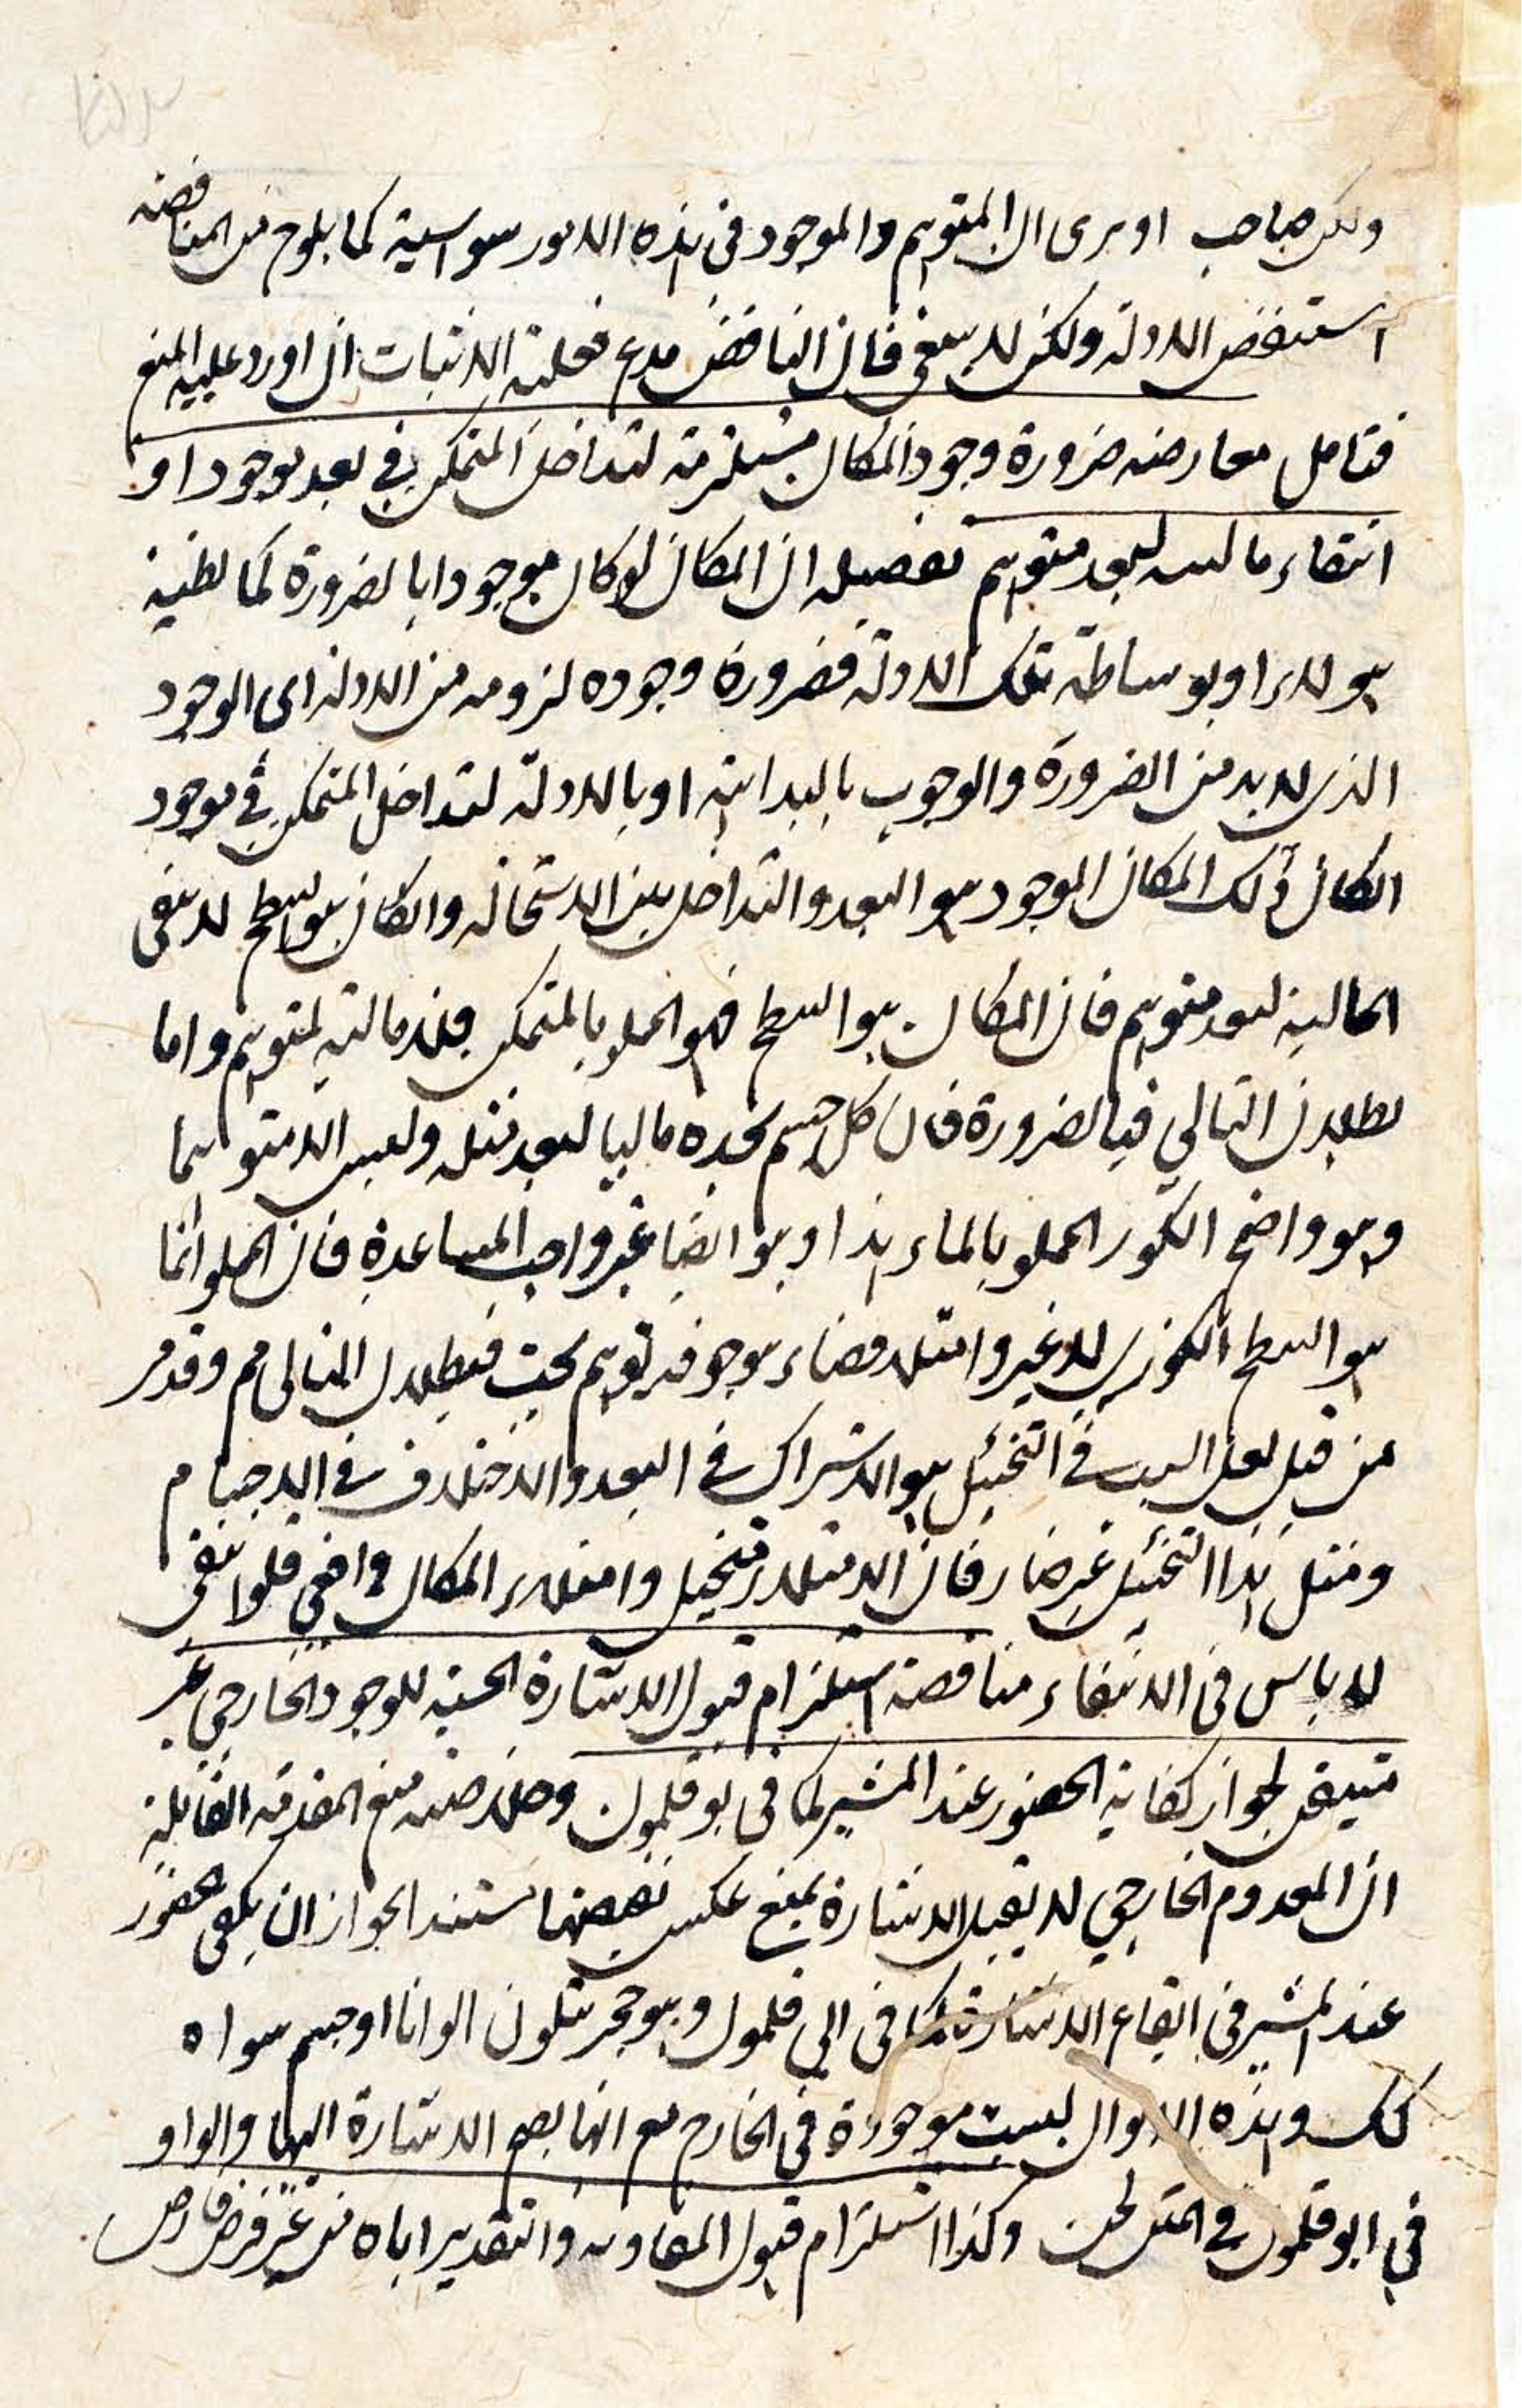 ولكن صاحب او يرى ان المتوهم والموجود في هذه الامور سواسية كما يلوح من المناقضة
استنقض الادلة ولكن لا ينبغي فان الناقض مدع فعليه الاثبات ان اورد عليه المنع
فتامل معارضه ضرورة وجود المكان مستلزمة لتداخل المتمكن في بعد موجود او
انتفاء ماليه لبعد متوهم تفصيله ان المكان لو كان موجودا بالضرورة كما يظنه
هولاء او بوساطة تلك الادلة فضرورة وجوده لزومه من الادلة اى الوجود
الذى لا بد من الضرورة والوجوب بالبداهة او بالادلة لتداخل المتمكن في موجود
ان كان ذلك المكان الموجود هو البعد والتداخل بين الاستحالة وان كان هو السطح لا ينفى
المالية لبعد متوهم فان المكان هو السطح فهو المملو بالمتمكن فلا مالية لمتوهم واما
بطلان التالي فبالضرورة فان كل جسم نجده ماليا لبعد مثله وليس الا متوهما
وهو واضح الكوز المملو بالماء هذا وهو ايضا غير واجب المساعدة فان المملو انما
هو السطح الكوزى لا غير وامتلاء فضاء موجود توهم بحت فبطلان التالى مم وقد مر
من قبل لعل السبب في التخييل هو الاشتراك في البعد والاختلاف في الاجسام
ومثل هذا التخييل غير ضار فان الامتلاء تخييل وامتلاء المكان واقعي فلو انتفى
لا باس في الانتفاء مناقضة استلزام قبول الاشارة الحسية للوجود الخارجي غير
متيقن لجواز كفاية الحضور عند المشير كما في بوقلمون وخلاصته منع المقدمة القائلة
ان المعدوم الخارجي لا يقبل الاشارة بمنع عكس نقيضها مستندا لجواز ان يكفى الحضور
عند المشير في ايقاع الاشارة كما في ابي قلمون وهو حجر يتلون الوانا او جسم سواه
كك وهذه الالوان ليست موجودة في الخارج مع انها يصح الاشارة اليها والواو
في ابوقلمون في المتن لحن وكذا استلزام قبول المفاوتة والتقدير اياه من غير فرض فارض